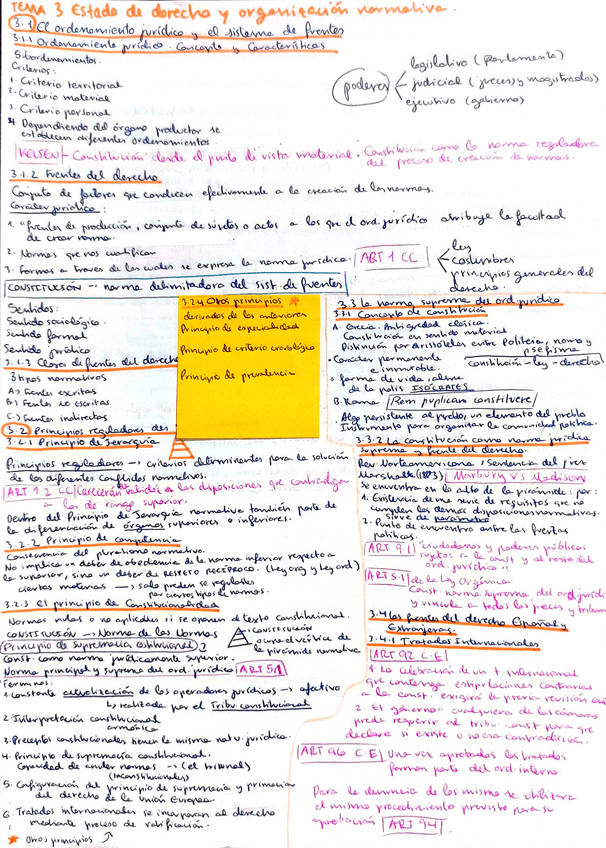 TEMA 3 Estado de derecho y organización normativa.
3.1 El ordenamiento jurídico y el sistema de fuentes
3.1.1 Ordenamiento jurídico. Concepto y Características
Subordenamientos.
Criterios:
1. Criterio territorial
2. Criterio material
3. Criterio personal
4. Dependiendo del órgano productor se
establecen diferentes ordenamientos
poderes
legislativo (Parlamento)
judicial (jueces y magistrados)
ejecutivo (gobierno)
KELSEN Constitución desde el punto de vista material. Constitución como la norma reguladora
del proceso de creación de normas.
3.1.2 Fuentes del derecho
Conjunto de factores que conducen efectivamente a la creación de las normas.
Carácter jurídico:
1. "fuentes de producción, conjunto de sujetos o actos a los que el ord. jurídico atribuye la facultad
de crear norma.
2. Normas que nos cualifican
3. Formas a través de las cuales se expresa la norma jurídica. ART 1 CC
ley
costumbres
principios generales del
derecho.
CONSTITUCIÓN → norma delimitadora del sist. de fuentes
Sentidos:
Sentido sociológico
Sentido formal
Sentido jurídico
3.1.3 Clases de fuentes del derecho
3 tipos normativos
A) Fuentes escritas
B) Fuentes no escritas
C) Fuentes indirectas
3.2 Principios reguladores des
3.2.1 Principio de Jerarquía
Principios reguladores → criterios determinantes para la solución
de los diferentes conflictos normativos.
ART 1.2 CC/ Carecerán de validez las disposiciones que contradigan
a las de rango superior.
Dentro del Principio de Jerarquía normativa también parte de
la diferenciación de órganos superiores o inferiores.
3.2.2 Principio de competencia
Consecuencia del pluralismo normativo.
No implica un deber de obediencia de la norma inferior respecto a
la superior, sino un deber de RESPETO RECÍPROCO. (Ley org y ley ord)
ciertas materias → solo pueden ser reguladas
por ciertos tipos de normas.
3.2.3 El principio de Constitucionalidad
Normas nulas o no aplicables si se oponen al texto Constitucional.
CONSTITUCIÓN → Norma de las Normas
Principio de supremacía constitucional
CONSTITUCIÓN
ocupa el vértice de
la pirámide normativa
Const. como norma jurídicamente superior.
Norma principal y suprema del ord. jurídico ART 5.1
Términos:
1. Constante actualización de los operadores jurídicos → efectivo
realizada por el Tribu constitucional
2. Interpretación constitucional
armónica
3. Preceptos constitucionales tienen la misma natu. jurídica.
4. Principio de supremacía constitucional.
Capacidad de anular normas → (el tribunal)
(inconstitucionales)
5. Configuración del principio de supremacía y primacía
del derecho de la Unión Europea.
6. Tratados internacionales se incorporan al derecho
mediante proceso de ratificación.
* Otros principios
3.2.4 Otros principios *
derivados de los anteriores
Principio de especialidad
Principio de criterio cronológico
Principio de prevalencia
3.3 la norma suprema del ord. jurídico
3.3.1 Concepto de constitución
A. Grecia. Antigüedad clásica.
Constitución en sentido material
Distinción por Aristóteles entre Politeia, nomo y
psefisma
• Carácter permanente
e inmutable.
Constitución - ley - decreto
• forma de vida, alma
de la polis ISÓCRATES
B. Roma Rem publican constituere
Algo persistente al pueblo, un elemento del pueblo
Instrumento para organizar la comunidad política.
3.3.2 La constitución como norma jurídica
suprema y fuente del derecho.
Rev. Norteamericana, Sentencia del juez
Marshall (1803) Marbury VS Madison
se encuentra en lo alto de la pirámide: por:
1. Existencia de una serie de requisitos que no
cumplen las demás disposiciones normativas.
Sirve de parámetro
2. Punto de encuentro entre las fuerzas
políticas.
ART 9.1 "ciudadanos y poderes públicos
sujetos a la const y al resto del
ord. jurídico"
ART 5.1 de la Ley Orgánica
Const. norma suprema del ord. jurídi
y vincula a todos los jueces y tribun
3.4 las fuentes del derecho Español y
Extranjeras.
3.4.1 Tratados Internacionales
ART 92 C.E
1. La celebración de un t internacional
que contenga estipulaciones contrarias
a la const. exigirá la previa revisión con
2. El gobierno o cualquiera de las cámaras
puede requerir al tribu. const. para que
declare si existe o no esa contradicción.
ART 96 C.E Una vez aprobados los tratados
forman parte del ord. interno.
Para la denuncia de los mismos se utilizará
el mismo procedimiento previsto para su
aprobación ART 94